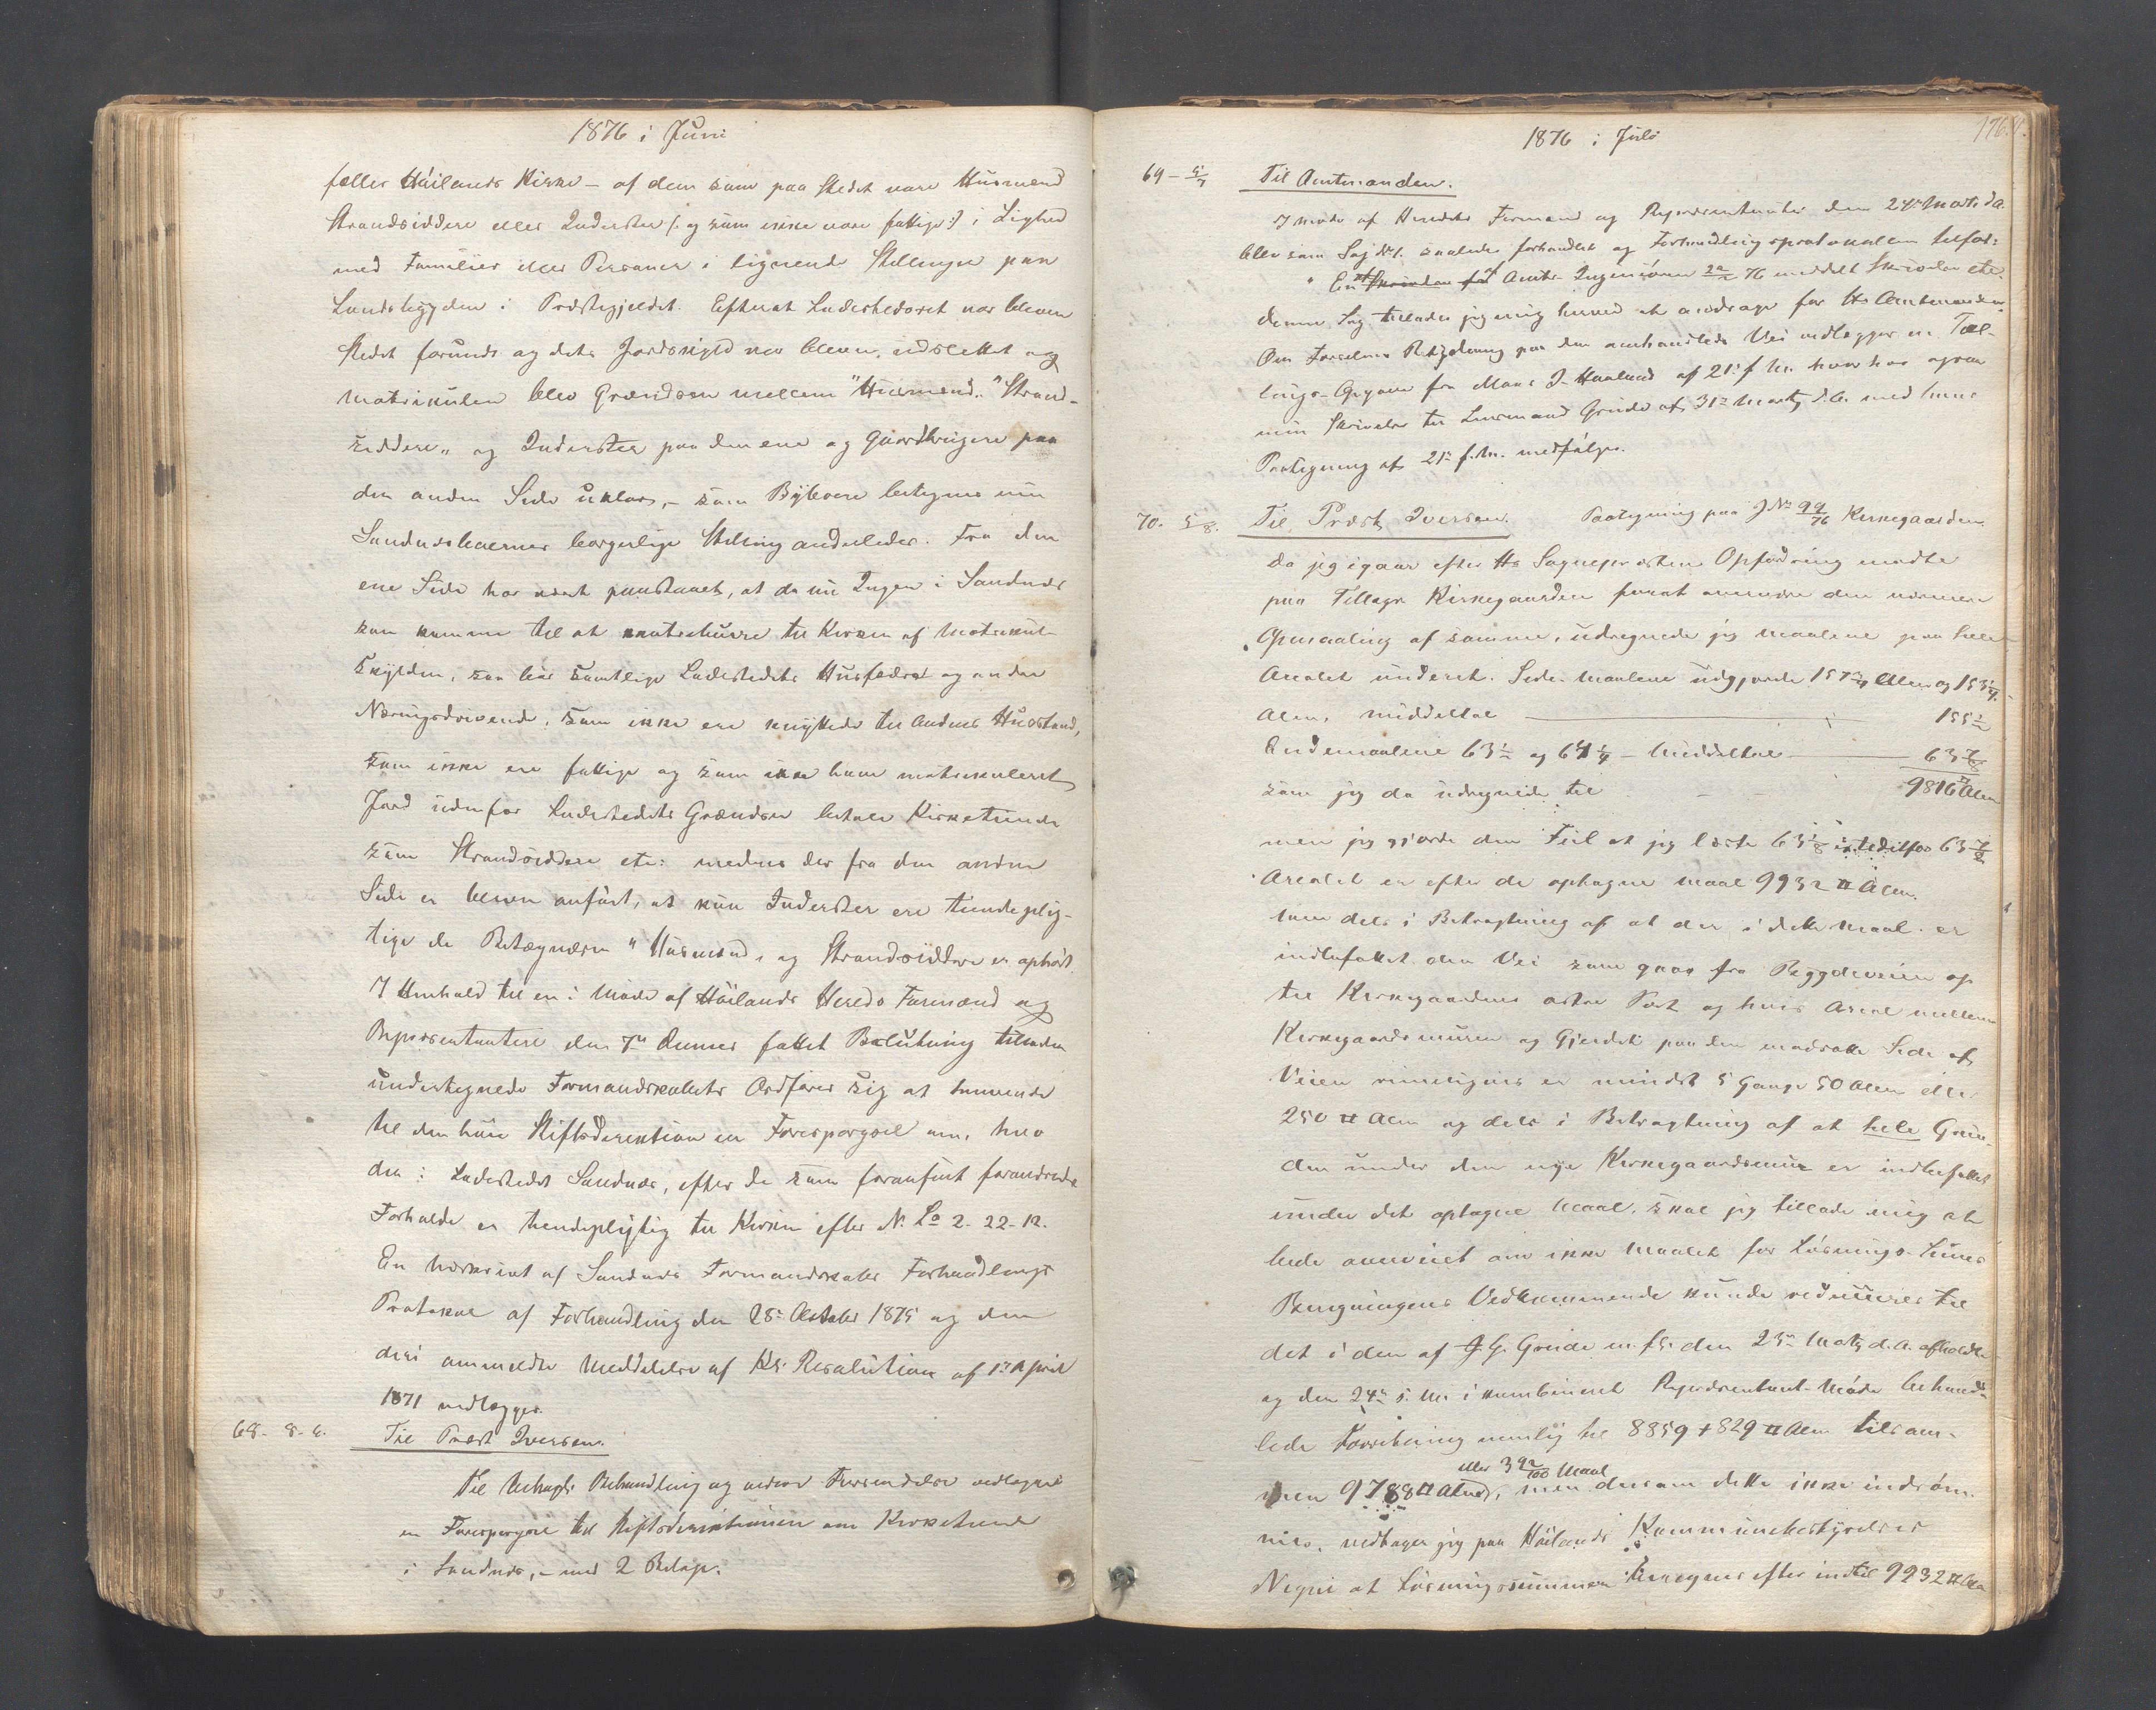 1876 i Juni
fæller Höilands Kirke – af dem som paa Stedet vare Husmænd
Strandsiddere eller Inderster (: og som ikke vare fattige :) i Lighed
med Familier eller Personer i lignende Stillinger paa
Landsbygden i Præstegjeldet. Efterat Ladestedsret var bleven
Stedet forundt og dets Jordskyld var bleven udslettet og
Matrikulen blev Grændsen mellem "Husmænd", "Strand-
siddere" og Inderster paa den ene og Gaardbrugere paa
den anden Side uklar, – som Byboere betegnes nu
Sandnæsboernes borgerlige Stilling anderledes. Fra den
ene Side har været paastaaet, at da nu Ingen i Sandnæs
kan komme til at contribuere til Kirken af Matrikul-
skylden, saa bör samtlige Ladestedets Husfædre og andre
Næringsdrivende, som ikke ere knyttede til Andres Husstand,
som ikke ere fattige og som ikke have matrikuleret
Jord udenfor Ladestedets Grændser betale Kirketiende
som Strandsiddere etc: medens der fra den anden
Side er bleven anfört, at kun Inderster ere tiendeplig-
tige da Betegnelsen "Husmænd" og Strandsiddere er ophört.
I Henhold til en i Möde af Höilands Herreds Formænd og
Repræsentantere den 7de dennes fattet Beslutning tillader
undertegnede Formandskabets Ordförer sig at henvende
til den höie Stiftsdirektion en Forespörgsel om, hvo
der i Ladestedet Sandnæs, efter de som foranfört forandrede
Forholde er tiendepligtig til Kirken efter N. Lo 2-22-12.
En Udskrift af Sandnæs Formandskabs Forhandlings
Protokol af Forhandling den 28de Oktober 1875 og den
deri ommeldte Meddelelse af Kgl. Resolution af 1ste April
1871 vedlægges.
68. 8-6. Til Præst Iversen.
Til behagl. Behandling og videre Forsendelse vedlægges
en Forespörgsel til Stiftsdirektionen om Kirketiende
i Sandnæs, – med 2 Bilage.
1876 i Juli
69 – 5/7 Til Amtmanden.
I Möde af Herredets Formænd og Repræsentanter den 24de Marts d.a.
blev som Sag No 1. saaledes forhandlet og Forhandlingsprotokollen tilført:
" En Amts-Ingeniören 76 meddelt Skrivelse etc.
denne Sag tillader jeg mig herved at andrage for Hr. Amtmanden
Om Færdselens Betydning paa den omhandlede Vei vedlægges en Tæl-
lings-Opgave fra Mons J. Haaland af 21de f. M. hvorhos ogsaa
min Skrivelse til Lensmand Grude af 31te Marts d.A. med hans
Paategning af 21de f.M. medfölger.
70. 5/8. Til Præst Iversen. Paategning paa JNo 99/76 Kirkegaarden.
Da jeg igaar efter Hr. Sognepræstens Opfordring mödte
paa Tillægs Kirkegaarden forat den nærmere
Opmaaling af samme, udregnede jeg Maalene paa hele
Arealet underet. Side-Maalene udgjorde 157 3/4 Alen og 153 1/4
Alen, middeltal 155 1/2
Endemaalene 63 1/2 og 64 1/4 – Middeltal 63 7/8
som jeg da udregnede til 9816 Alen
men jeg gjorde den Feil at jeg læste 63 1/8 istedetfor 63 7/8
Arealet er efter de optagne Maal 9932 □ Alen.
Men dels i Betragtning af at der i dette Maal er
indbefattet den Vei som gaar fra Byggdeveien op
til Kirkegaardens östre Port og hvis Areal mellem
Kirkegaardsmuren og Gjerdet paa den modsatte Side af
Veien rimeligvis er mindst 5 Gange 50 Alen eller
250 □ Alen og dels i Betragtning af at hele Grun-
den under den nye Kirkegaardsmur er indbefattet
under det optagne Maal, skal jeg tillade mig at
bede om ikke Maalet for Lösnings-Summens
Beregningens Vedkommende kunde reduceres til
det i den af G. G. Grude m. fl. den 25de Marts d.A. afholdte
og den 24de s. M. i kombineret Repræsentant-Möde behand-
lede Forretning nemlig til 8859 + 829 □ Alen tilsam-
men 9788 □ Alen, eller 3 92/100 Maal men dersom dette ikke indröm-
mes, vedtager jeg paa Höilands Kommunebestyrelses
Vegne at Lösningssummen beregnes efter indtil 9932 □ Alen